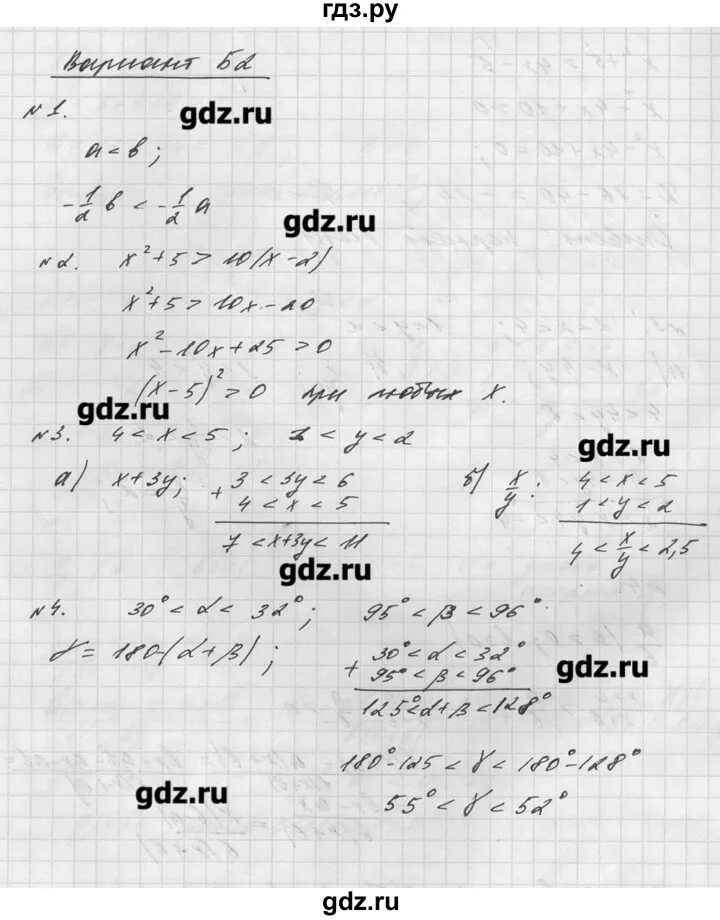 гдз.ру
Вариант Б2
№1.
gdz.ru
a < b ;
-1/2 b < -1/2 a
gdz.ru
№2. x²+5 > 10(x-2)
x²+5 > 10x-20
x²-10x+25 > 0
(x-5)² > 0 при любых x.
gdz.ru
№3. 4 < x < 5 ; 1 < y < 2
gdz.ru
а) x+3y; + 3 < 3y < 6 б) x/y : 4 < x < 5
4 < x < 5 1 < y < 2
7 < x+3y < 11 4 < x/y < 2,5
gdz.ru
№4. 30° < α < 32° ; 95° < β < 96°
γ = 180-(α+β) ; + 30° < α < 32°
95° < β < 96°
gdz.ru
125° < α+β < 128°
180°-125 < γ < 180°-128°
gdz.ru
55° < γ < 52°
gdz.ru